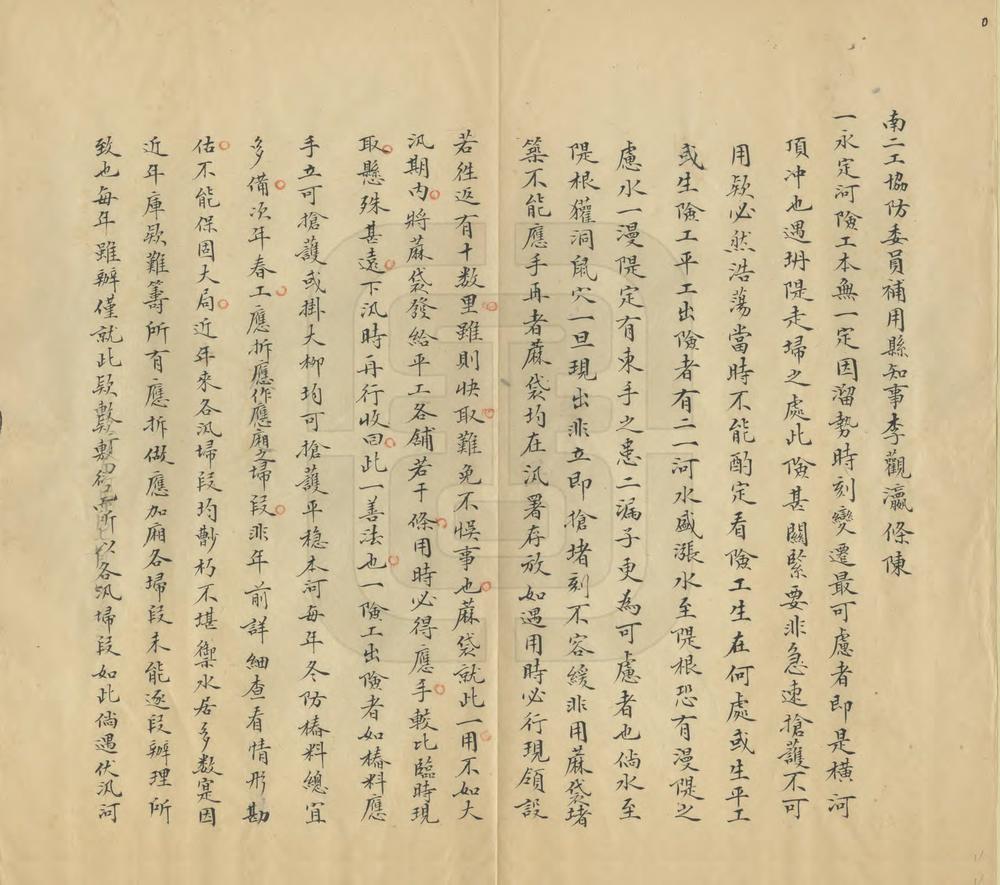 南二工協防委員補用縣知事李觀瀛條陳
一永定河險工本無一定因溜勢時刻變遷最可慮者即是橫河
頂冲也遇坍隄走埽之處此險甚關緊要非急速搶護不可
用欵必然浩蕩當時不能酌定看險工生在何處或生平工
或生險工平工出險者有二一河水盛漲水至隄根恐有漫隄之
慮水一漫隄定有束手之患二漏子更為可慮者也倘水至
隄根獾洞鼠穴一旦現出非立即搶堵刻不容緩非用蔴袋堵
築不能應手再者蔴袋均在汛署存放如遇用時必行現領設
若徃返有十数里雖則快取難免不悞事也蔴袋就此一用不如大
汛期内將蔴袋發給平工各舖若干條用時必得應手較比臨時現
取懸殊甚遠下汛時再行收回此一善法也一險工出險者如樁料應
手立可搶護或掛大柳均可搶護平稳本河每年冬防樁料總宜
多備次年春工應拆應作應廂之埽段非年前詳細查看情形勘
估不能保固大局近年來各汛埽段均斬朽不堪禦水居多数寔因
近年庫欵難籌所有應拆做應加廂各埽段未能逐段辦理所
致也每年雖辦僅就此欵敷衍所以各汛埽段如此倘遇伏汛河